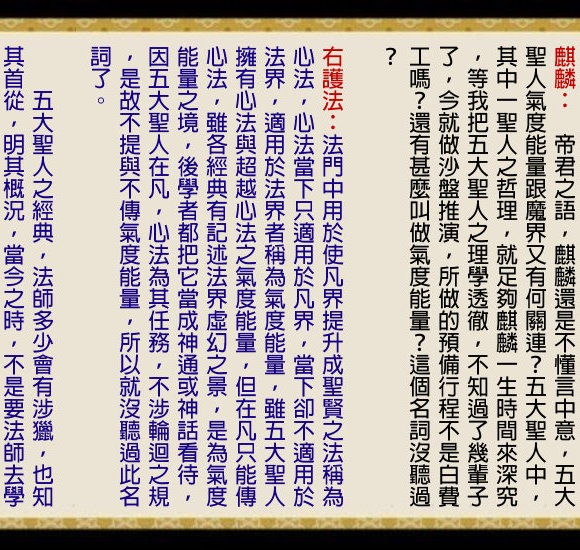 麒麟：　帝君之語，麒麟還是不懂言中意，五大
聖人氣度能量跟魔界又有何關連？五大聖人中，
其中一聖人之哲理，就足夠麒麟一生時間來深究
，等我把五大聖人之理學透徹，不知過了幾輩子
了，今就做沙盤推演，所做的預備行程不是白費
工嗎？還有甚麼叫做氣度能量？這個名詞沒聽過
？
右護法：法門中用於使凡界提升成聖賢之法稱為
心法，心法當下只適用於凡界，當下卻不適用於
法界，適用於法界者稱為氣度能量，雖五大聖人
擁有心法與超越心法之氣度能量，但在凡只能傳
心法，雖各經典有記述法界虛幻之景，是為氣度
能量之境，後學者都把它當成神通或神話看待，
因五大聖人在凡，心法為其任務，不涉輪迴之規
，是故不提與不傳氣度能量，所以就沒聽過此名
詞了。
五大聖人之經典，法師多少會有涉獵，也知
其首從，明其概況，當今之時，不是要法師去學